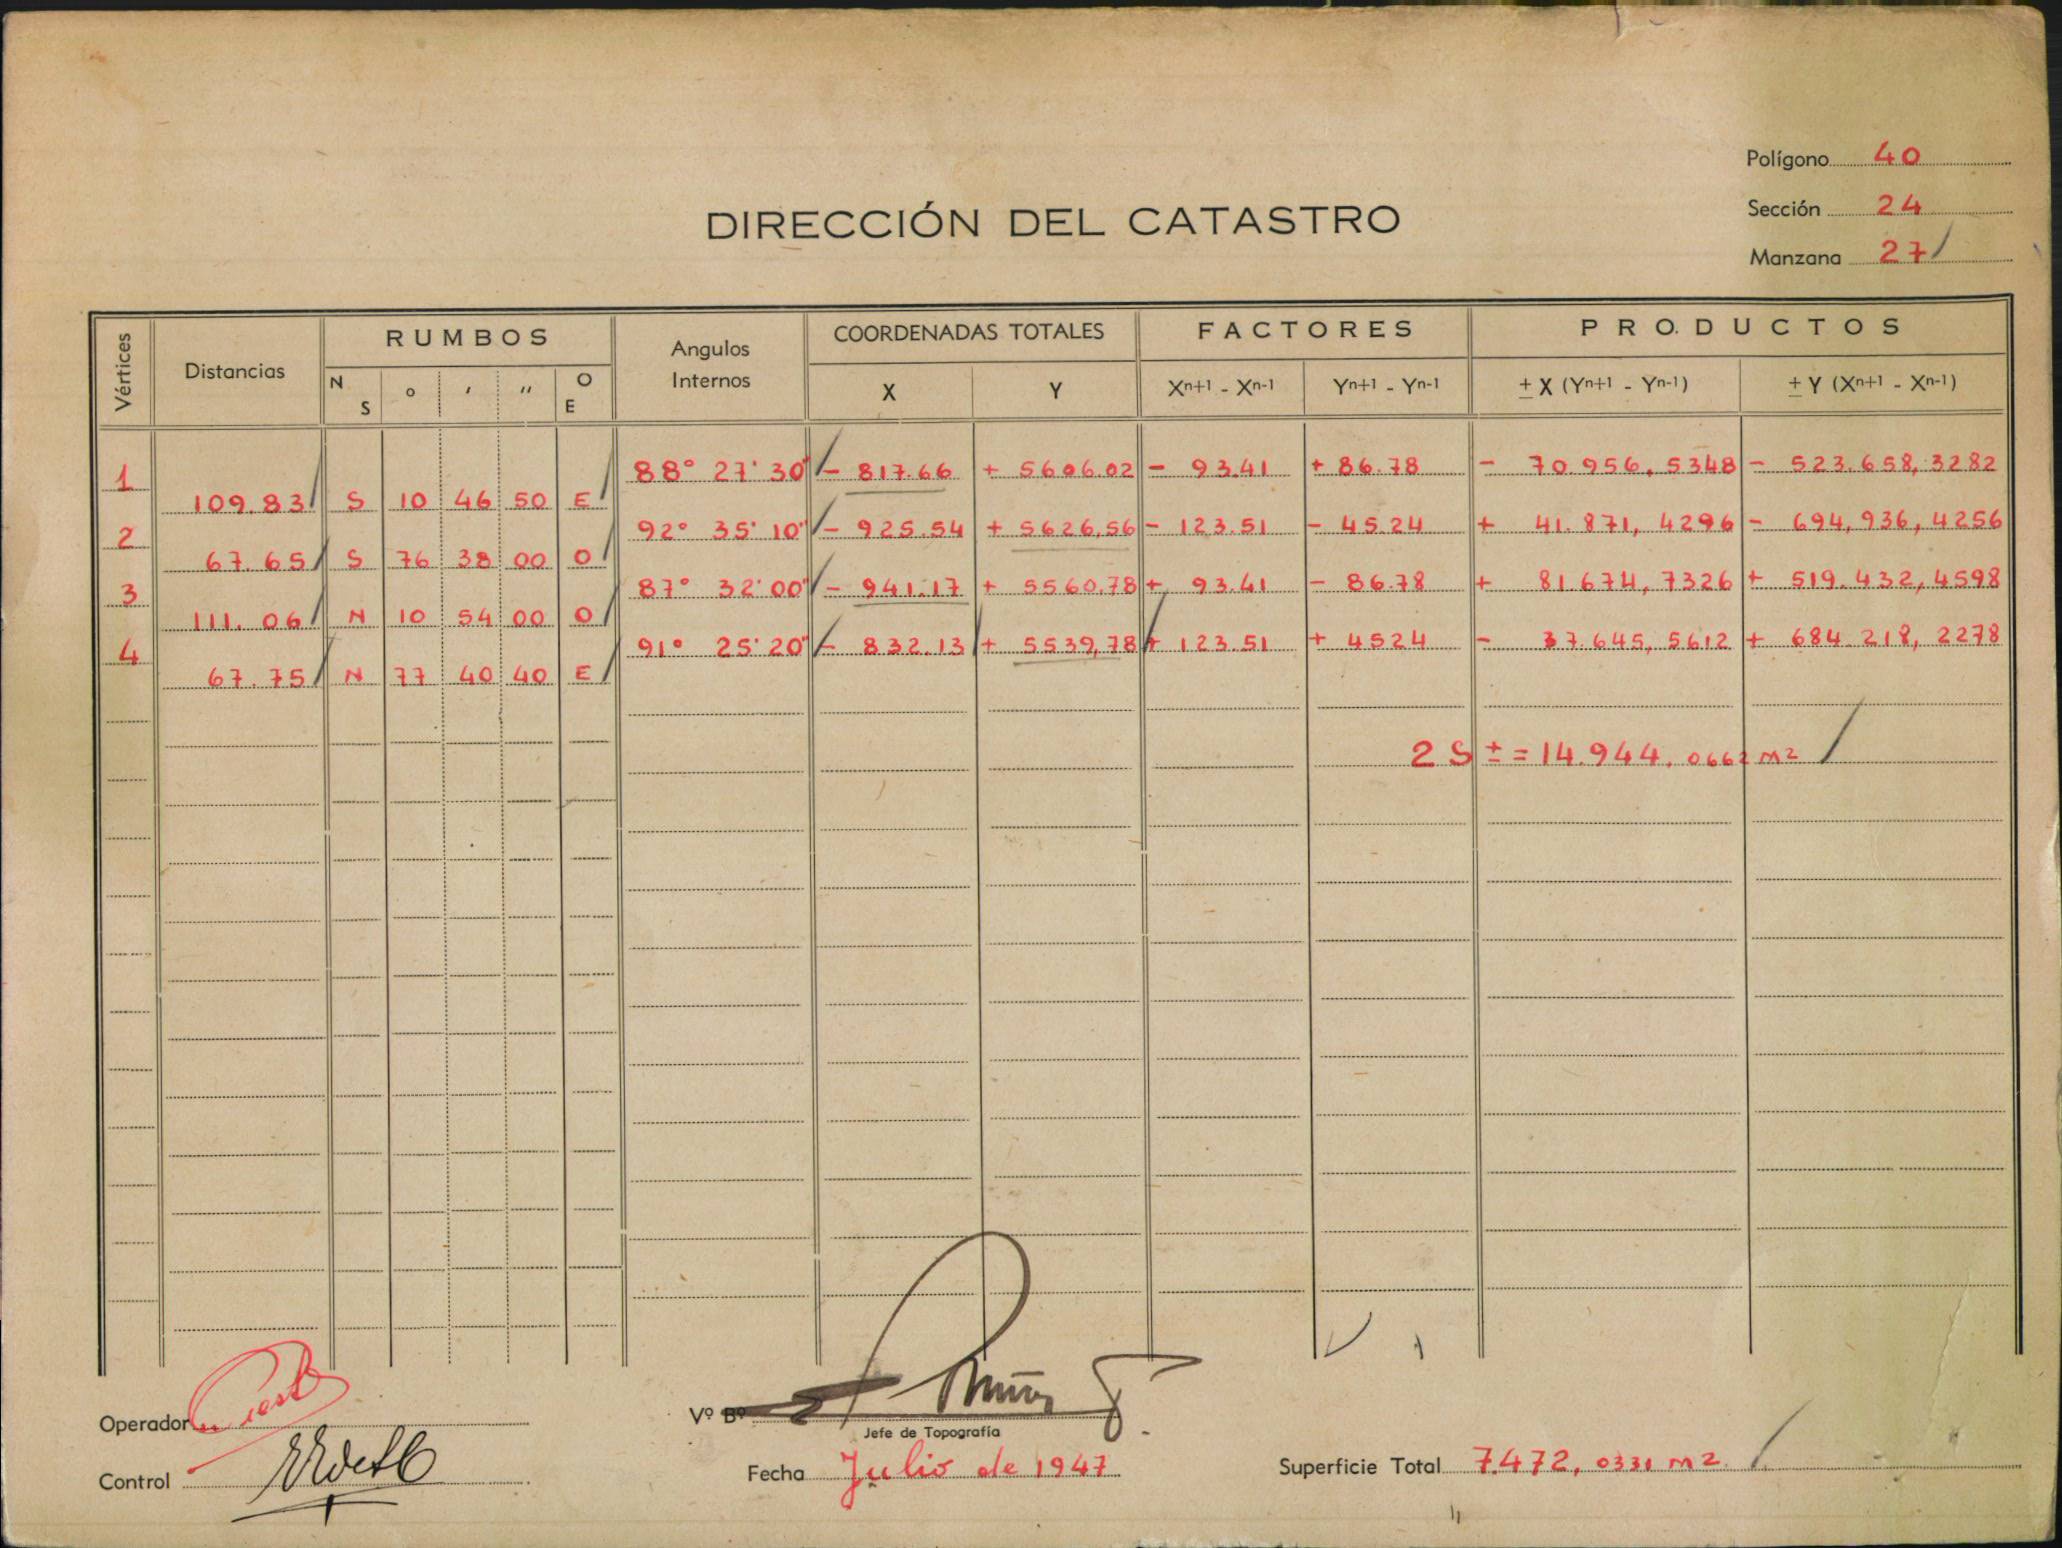 Polígono 40
DIRECCIÓN DEL CATASTRO
Sección 24
Manzana 27
Vértices Distancias RUMBOS Angulos Internos COORDENADAS TOTALES FACTORES PRODUCTOS
N S ° ' '' O E X Y Xn+1 - Xn-1 Yn+1 - Yn-1 ± X (Yn+1 - Yn-1) ± Y (Xn+1 - Xn-1)
1 88° 27' 30" - 817.66 + 5606.02 - 93.41 + 86.78 - 70.956,5348 - 523.658,3282
109.83 S 10 46 50 E
2 92° 35' 10" - 925.54 + 5626,56 - 123.51 - 45.24 + 41.871,4296 - 694,936,4256
67.65 S 76 38 00 O
3 87° 32' 00" - 941.17 + 5560.78 + 93.41 - 86.78 + 81.674,7326 + 519.432,4598
111.06 N 10 54 00 O
4 91° 25' 20" - 832.13 + 5539,78 + 123.51 + 4524 - 37.645,5612 + 684.218,2278
67.75 N 77 40 40 E
2 S ± = 14.944.0662 m2
Operador
Vº Bº
Jefe de Topografía
Control
Fecha Julio de 1947
Superficie Total 7.472,0331 m2.